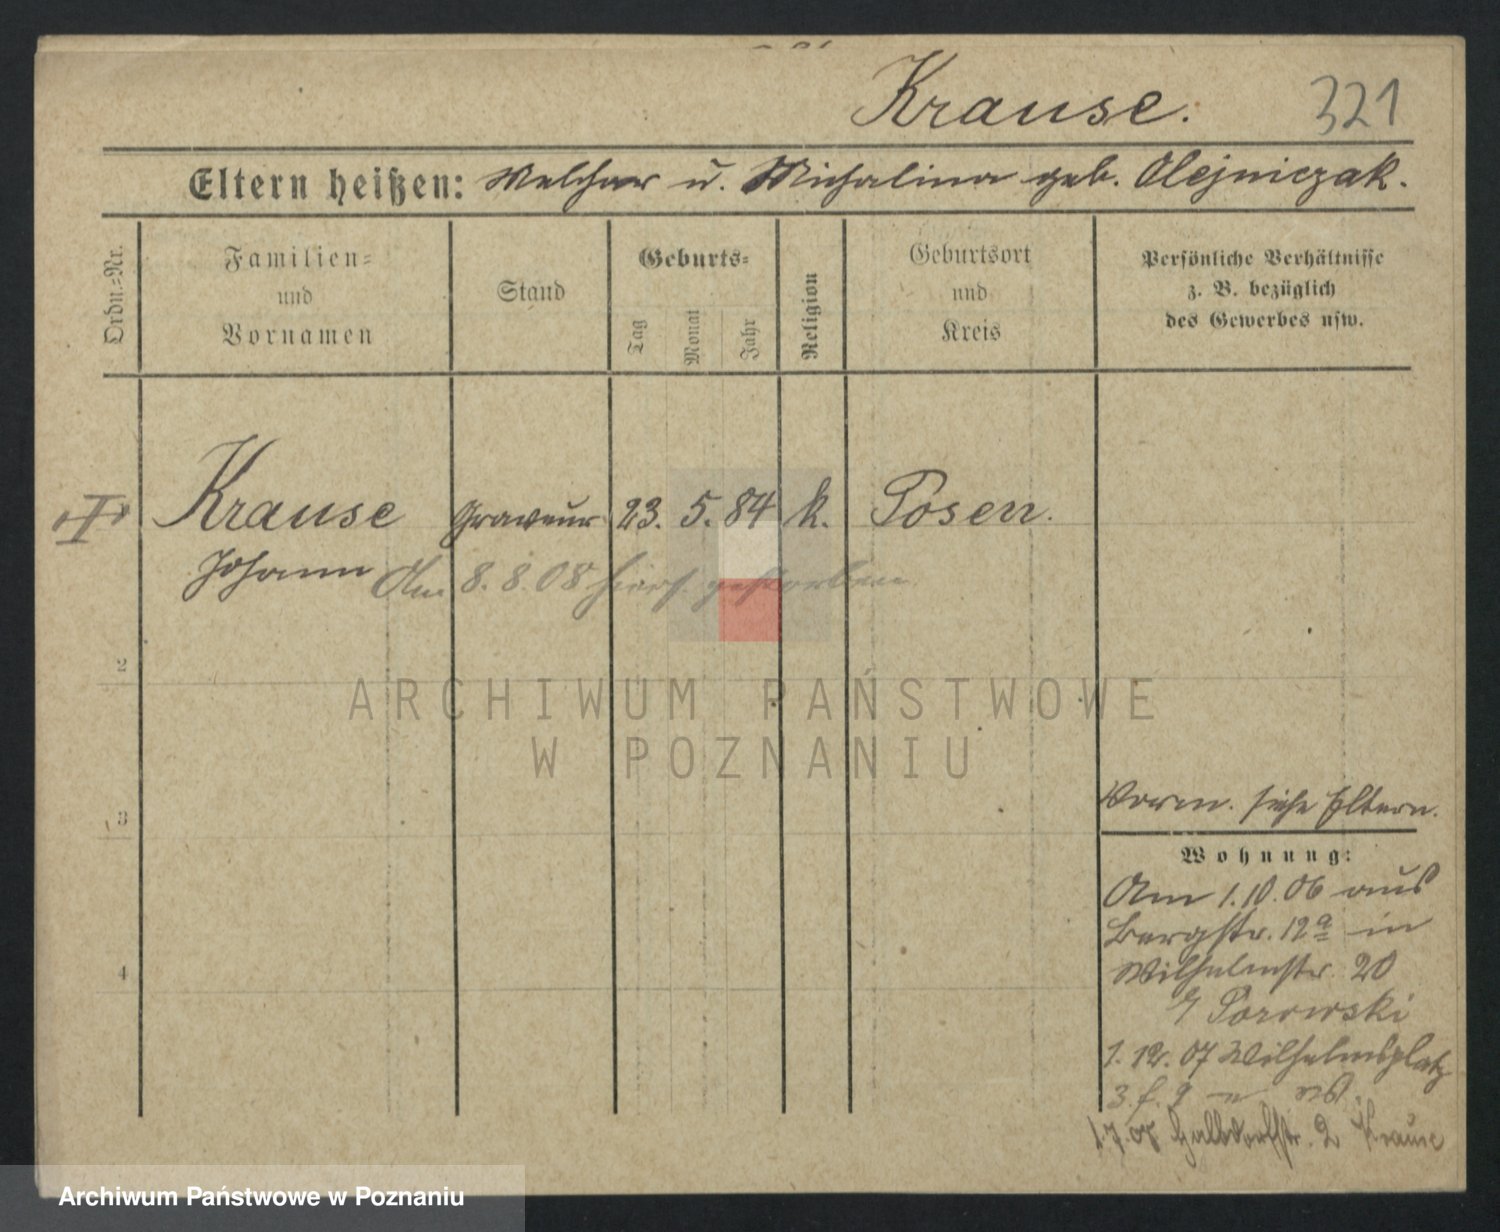 Krause.
321
Eltern heißen: Melchior u. Michalina geb. Olejniczak.
Ordn.=Nr.
Familien=
und
Vornamen
Stand
Geburts=
Tag
Monat
Jahr
Religion
Geburtsort
und
Kreis
Persönliche Verhältnisse
z. B. bezüglich
des Gewerbes usw.
Krause Graveur 23. 5. 84 k. Posen.
Johann
Am 8. 8. 08 hiers. gestorben
2
3
4
Vorm. siehe Eltern.
Wohnung:
Am 1.10.06 aus
Bergstr. 12a in
Wilhelmstr. 20
Porowski
1. 12. 07 Wilhelmsplatz
3. f. 9
1.7.07 Halbdorfstr. 2 Krause
ARCHIWUM PAŃSTWOWE
W POZNANIU
Archiwum Państwowe w Poznaniu